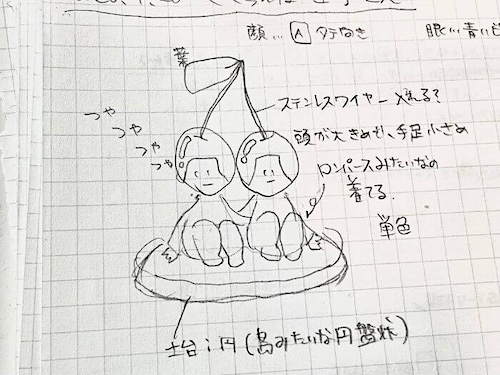 顔… 人 タテ向き
眼… 青いビ
葉
ステンレスワイヤー入れる?
つや
つや
つや
つや
頭が大きめで、手足小さめ
ロンパースみたいなの
着てる.
単色
土台;円(島みたいな円盤状)